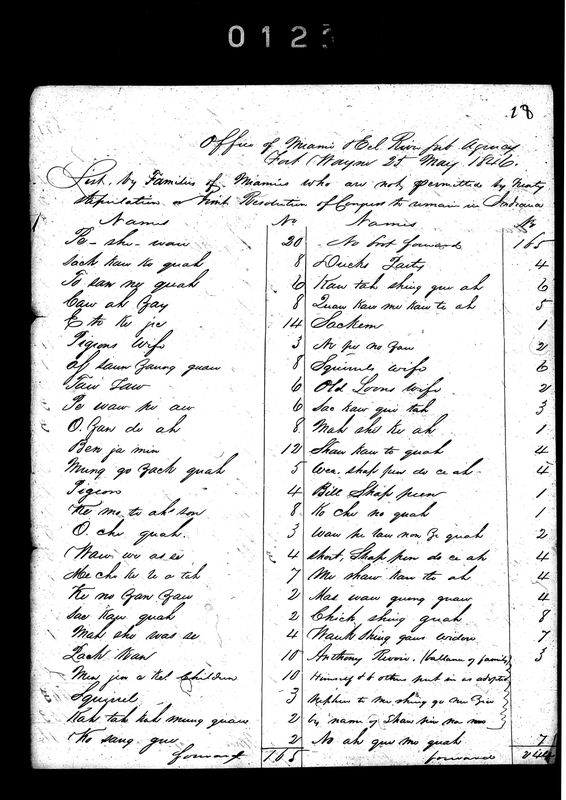 012
18
Office of Miami & Eel River sub Agency
Fort Wayne 25 May 1846.
List, by Families of Miamies who are not permitted by Treaty
stipulation or Joint Resolution of Congress to remain in Indiana
Names No Names No
Pe - she - wau 20 No bot forward 165
Sack kaw ko quah 8 Ducks Tails 4
To san ny quah 6 Kaw tah shing guu ah 6
Caw ah Zay 8 Quaw kaw me kaw te ah 5
E to ke jee 14 Sackem 1
Pigeons Wife 3 No pe no Zaw 2
8 Squirrels wife 6
Taw Taw 6 Old Loons wife 2
Pe waw pe aw 6 Sac kaw que tah 3
O. Zan de ah 8 Mah she ke ah 1
Ben ja min 12 Shaw kaw to quah 4
Mung go Zack quah 5 Wea. shap pen do ce ah 4
Pigeon 4 Bill Shap peen 1
Ke me to ah son 8 Ko che no quah 1
O. che quah. 3 Waw pe law mon Ze quah 2
Waw we as se 4 Short, Shap pen do ce ah 4
Me cho ke le a tah 7 Me shaw kaw to ah 4
Ke no Zan Zaw 2 Mas waw gung quaw 4
Sac kaw quah 2 Chick shing quah 8
Mah she was se 4 Wauk shing gaws widow 7
Zack kan 10 Anthony Revoir. (ballance of family) 3
Men jin a kel Children 10 Himself & 6 others put in as adopted
Squirrel 3 Nephew to me shing go me Zia
Kah tah kah mung quaw 2 by name of Shaw pin no mo
Ko sang guu 2 No ah que mo quah 7
forward 165 forward